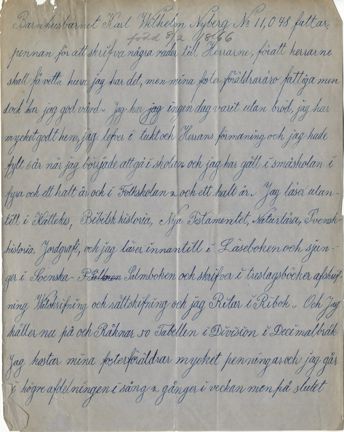 Barnhusbarnet Karl Wilhelm Nyberg No 11,048 fattar,
född 8/2 1866
pennan för att skrifva några rader till Herrarne, för att herrarne
skall få vetta huru jag har det, men mina foster föräldrar äro fattiga men
dock har jag god vård. Jag har jag ingen dag varit utan bröd, jag har
mycket godt hem, jag lefver i tukt och Herrans förmaning och jag hade
fylt när jag började att gå i skolan och jag har gått i småskolan i
fyra och ett halt år och i Folkskolan 2 och ett halt år. Jag läser utan-
till i Kattekes, Bibelsk historia, Nya Testamentet, Naturlära, Svensk-
historia Jordgrafi, och jag läser innantill i Läseboken och sjun-
ger i Svenska Psalmboken och skrifver i beslagsböcker afskrif-
ning Välskrifning och rättskrifning och jag Ritar i Ribok. Och jag
håller nu på och Räknar 50 Tabellen i Division i Decimalbråk
Jag kostar mina fosterföräldrar mycket penningar och jag går
i högre afdelningen i sång 2 gånger i veckan men på slutet